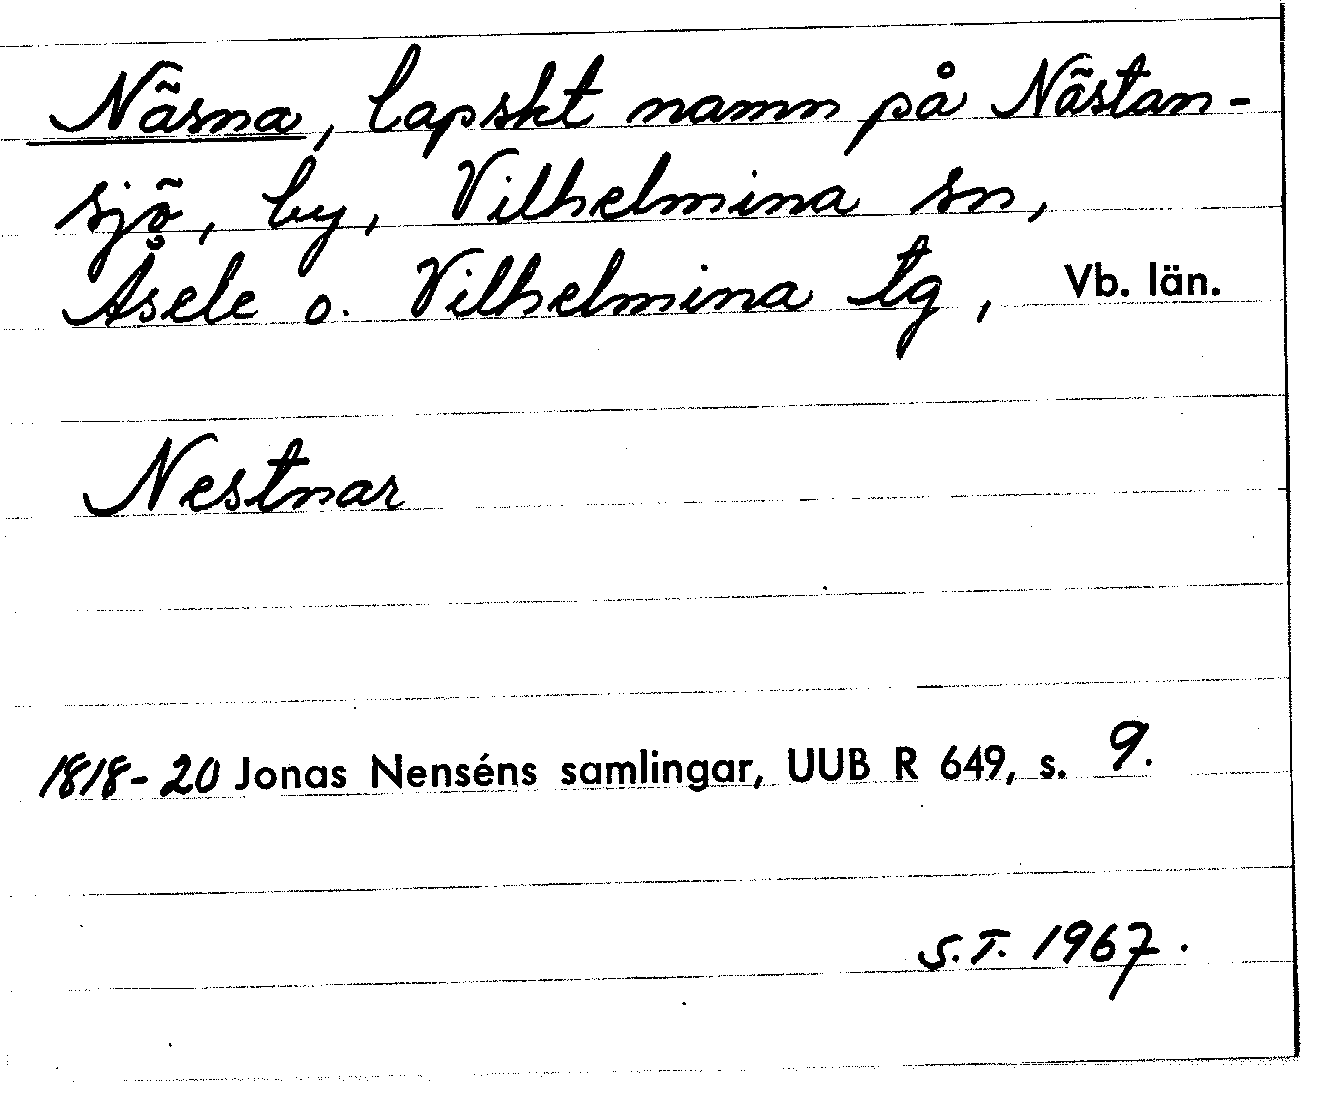 Näsna, lapskt namn på Nästan-
sjö, by, Vilhelmina sn,
Åsele o. Vilhelmina tg, Vb. län.
Nestnar
1818-20 Jonas Nenséns samlingar, UUB R 649, s. 9.
S.T. 1967.